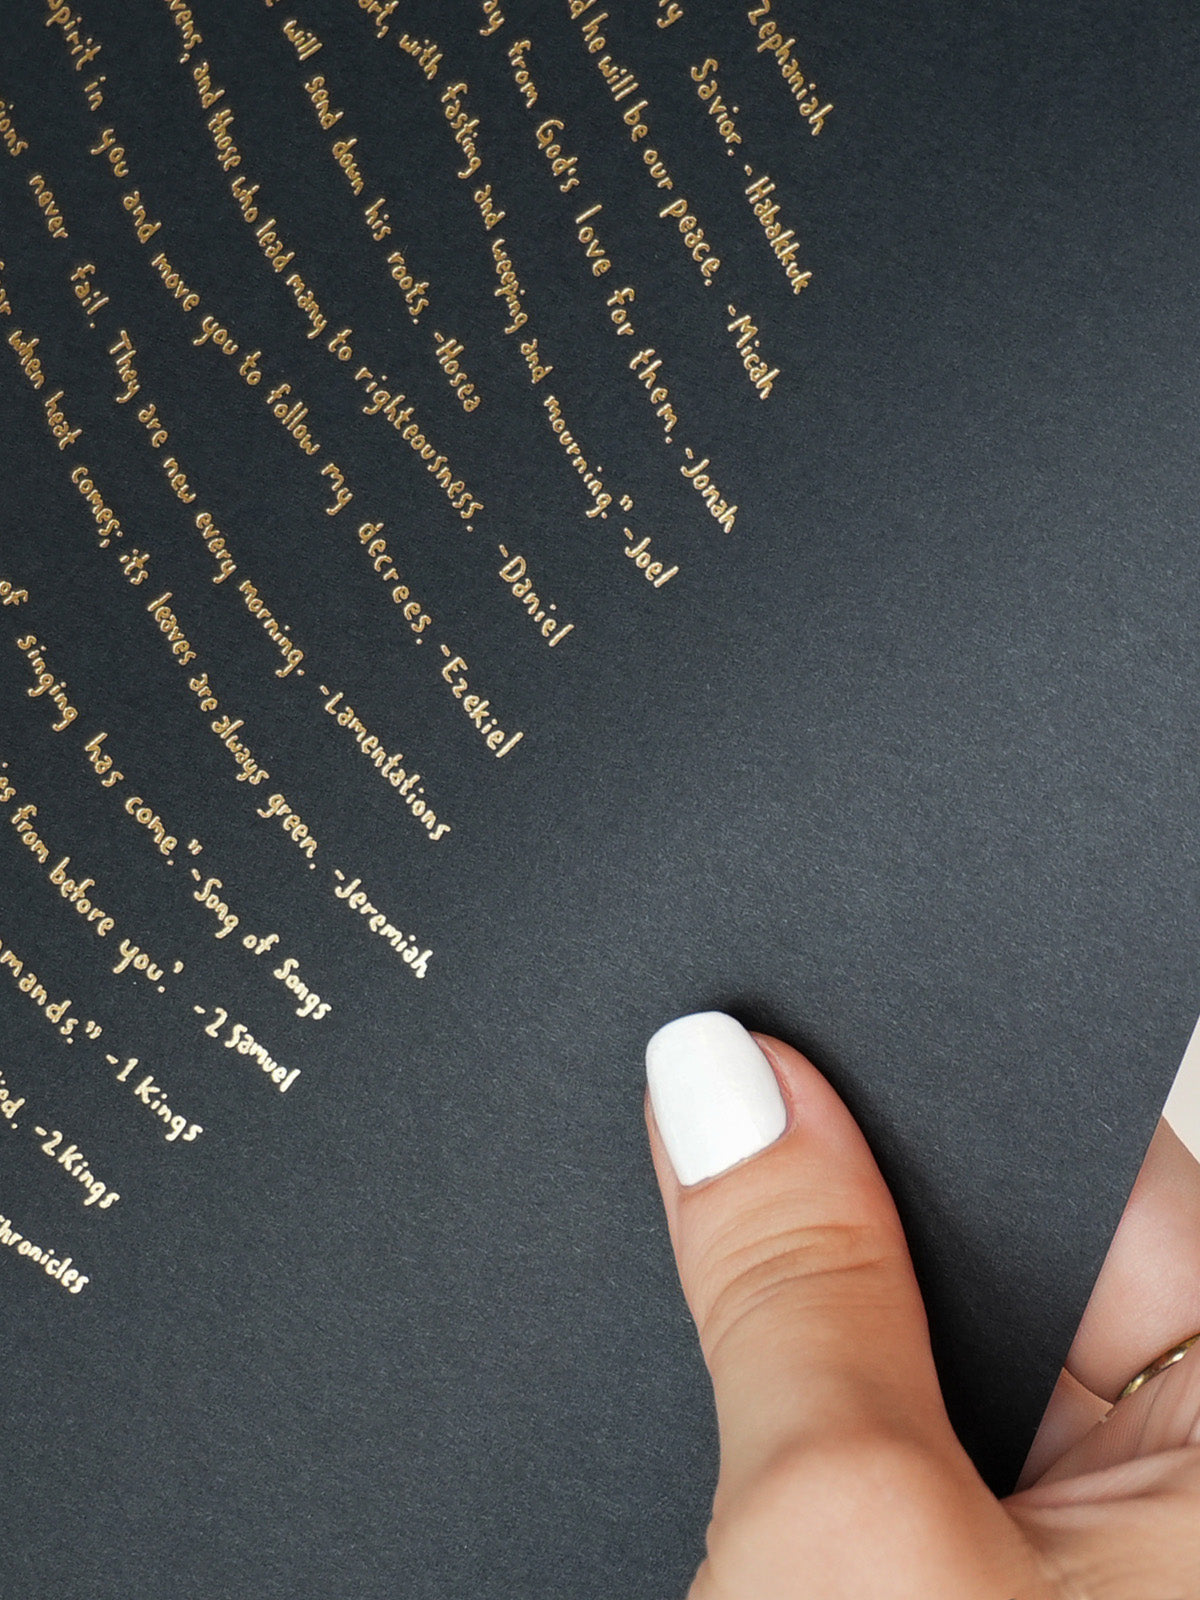 Zephaniah
Savior. -Habakkuk
he will be our peace. -Micah
from God's love for them. -Jonah
with fasting and weeping and mourning." -Joel
will send down his roots. -Hosea
and those who lead many to righteousness. -Daniel
spirit in you and move you to follow my decrees. -Ezekiel
never fail. They are new every morning. -Lamentations
when heat comes; its leaves are always green. -Jeremiah
of singing has come." -Song of Songs
from before you.' -2 Samuel
mands." -1 Kings
-2 Kings
Chronicles